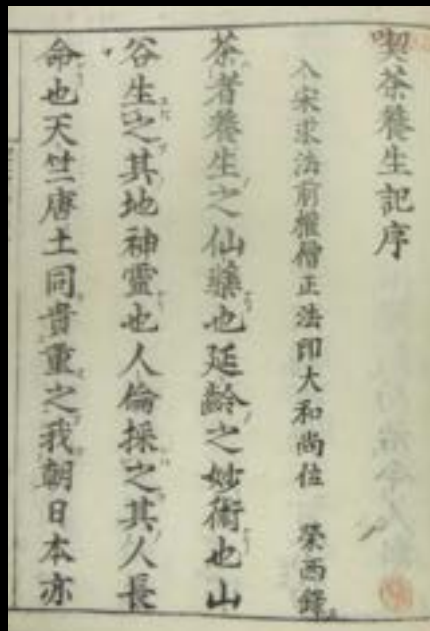 喫茶養生記序
入宋求法前權僧正法印大和尚位　榮西錄
茶者養生之仙藥也延齡之妙術也山
谷生之其地神靈也人倫採之其人長
命也天竺唐土同貴重之我朝日本亦